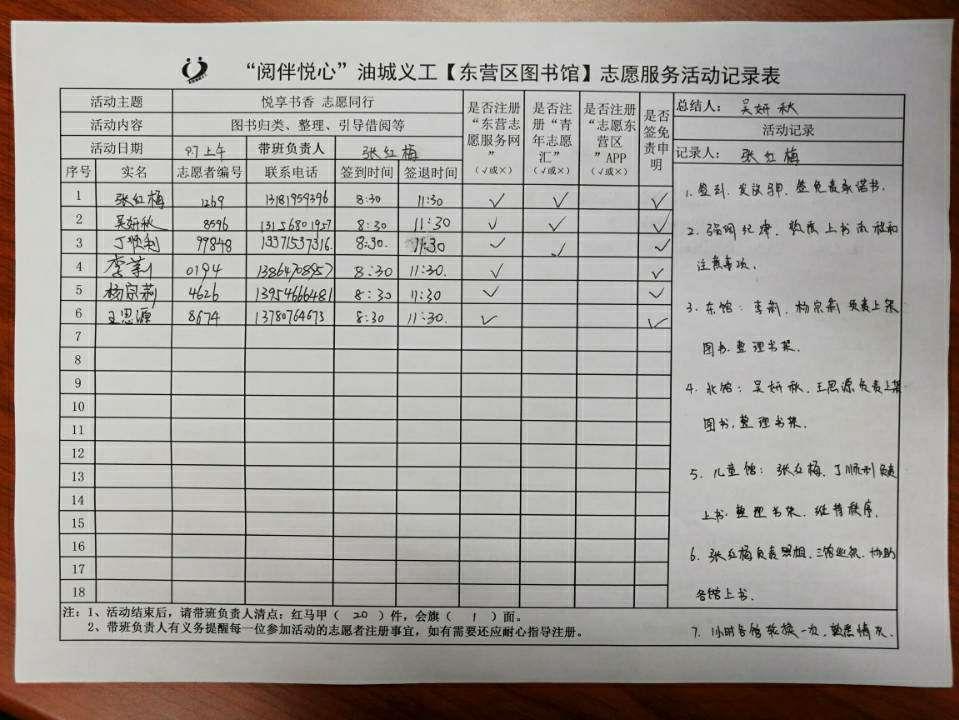 “阅伴悦心”油城义工【东营区图书馆】志愿服务活动记录表
活动主题 悦享书香 志愿同行 是否注册“东营志愿服务网”(√或×) 是否注册“青年志愿汇”(√或×) 是否注册“志愿东营区”APP(√或×) 是否签免责申明 总结人: 吴妍秋
活动内容 图书归类、整理、引导借阅等 活动记录
活动日期 9.7上午 带班负责人 张红梅 记录人: 张红梅
序号 实名 志愿者编号 联系电话 签到时间 签退时间
1 张红梅 1269 13181959396 8:30 11:30 √ √ √
2 吴妍秋 8596 13156801957 8:30 11:30 √ √ √
3 丁顺利 99848 13371537316 8:30. 11:30 √ √ √
4 李莉 0194 13864708957 8:30 11:30. √ √
5 杨宗莉 4626 13954666481 8:30 11:30 √ √
6 王思源 8674 13780764673 8:30 11:30. √ √
7
8
9
10
11
12
13
14
15
16
17
18
1. 签到、发议马甲、签免责承诺书.
2. 强调纪律, 熟悉上书流程和
注意事项.
3. 东馆: 李莉、杨宗莉负责上架
图书.整理书架.
4. 北馆: 吴妍秋、王思源负责上架
图书,整理书架.
5. 儿童馆: 张红梅、丁顺利负责
上书.整理书架、维持秩序.
6. 张红梅负责照相.三馆巡视.协助
各馆上书.
7. 1小时各馆轮换一次,熟悉情况.
注:1、活动结束后,请带班负责人清点:红马甲( 20 )件,会旗( 1 )面。
2、带班负责人有义务提醒每一位参加活动的志愿者注册事宜,如有需要还应耐心指导注册。